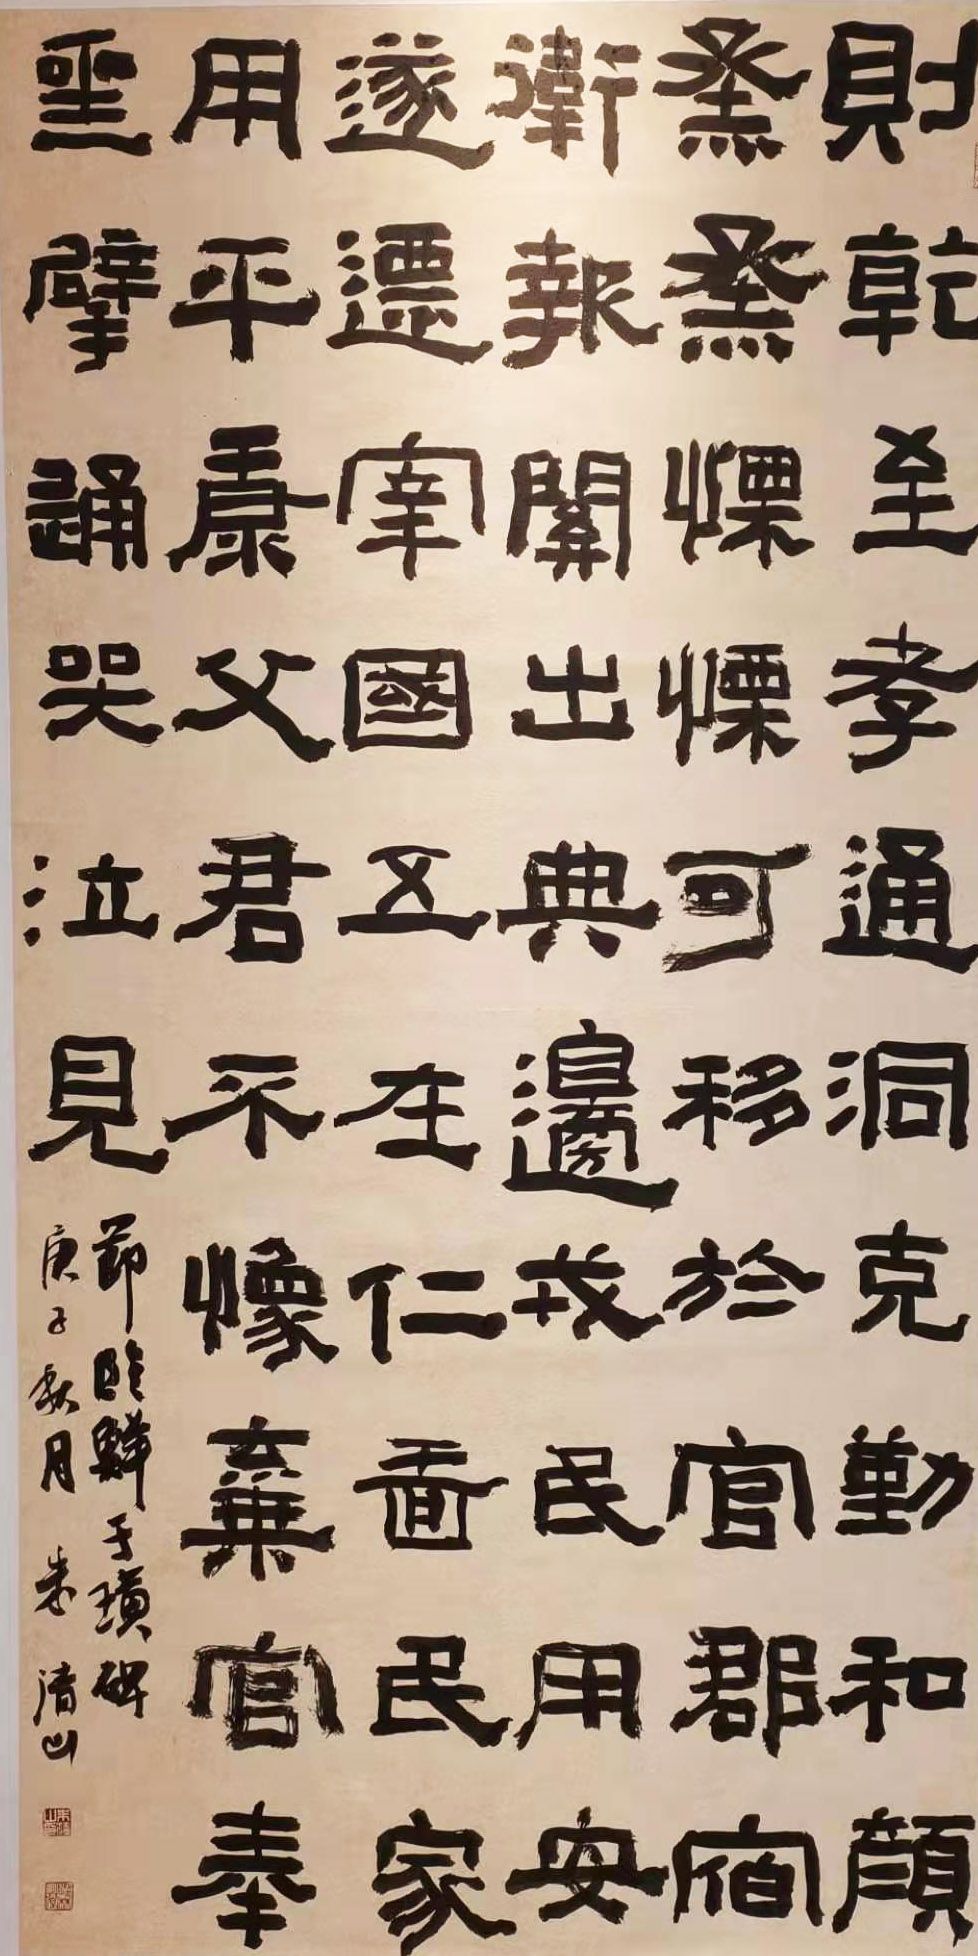 則乾至孝通洞克勤和顏
烝烝慄慄可移於官郡宿
衛報關出典邊戎民用安
遂遷宰國五在仁啚民家
用平康父君不棄官奉
喪擘踊哭泣見
節臨鮮于璜碑
庚子秋月 朱清山